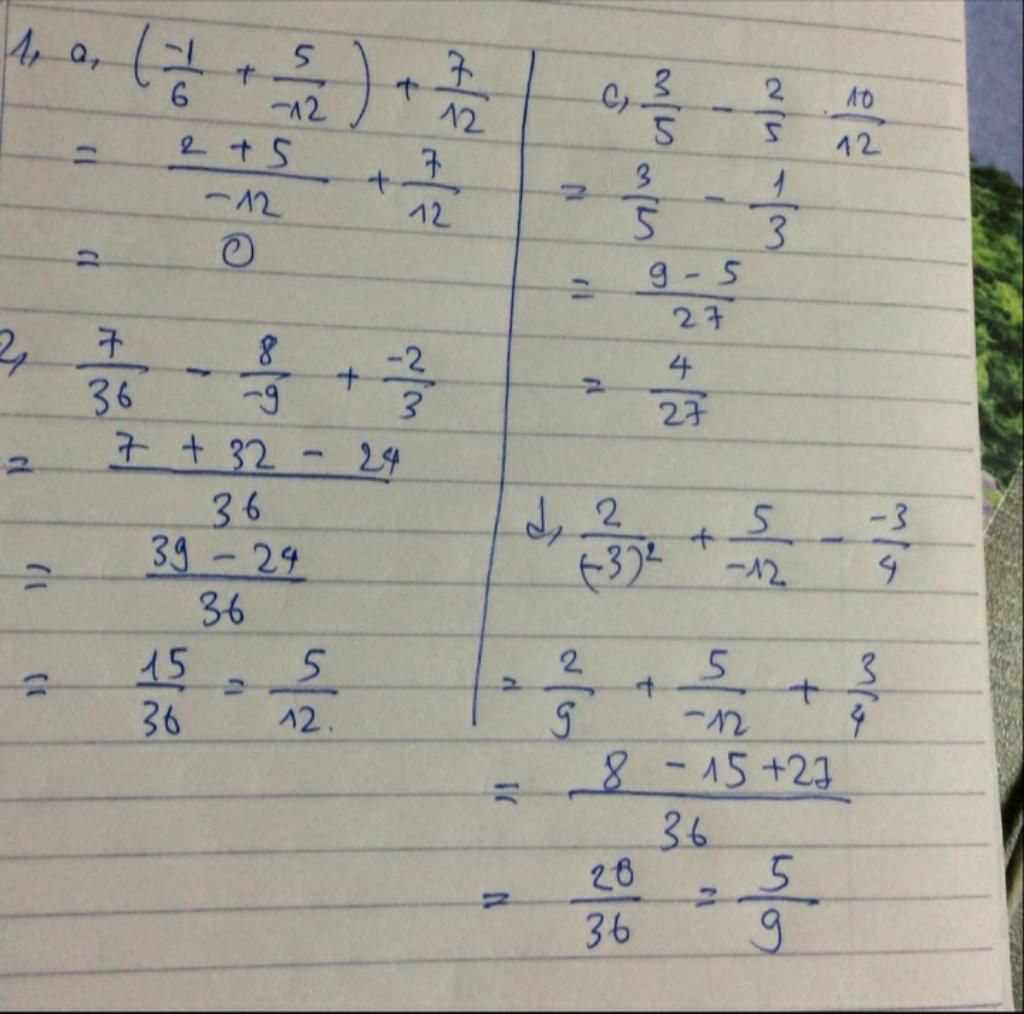 1, a, (-1/6 + 5/-12) + 7/12
= (2 + 5)/-12 + 7/12
= 0
2, 7/36 - 8/-9 + -2/3
= (7 + 32 - 24)/36
= (39 - 24)/36
= 15/36 = 5/12.
c, 3/5 - 2/5 . 10/12
= 3/5 - 1/3
= (9 - 5)/27
= 4/27
d, 2/(-3)² + 5/-12 - -3/4
= 2/9 + 5/-12 + 3/4
= (8 - 15 + 27)/36
= 20/36 = 5/9